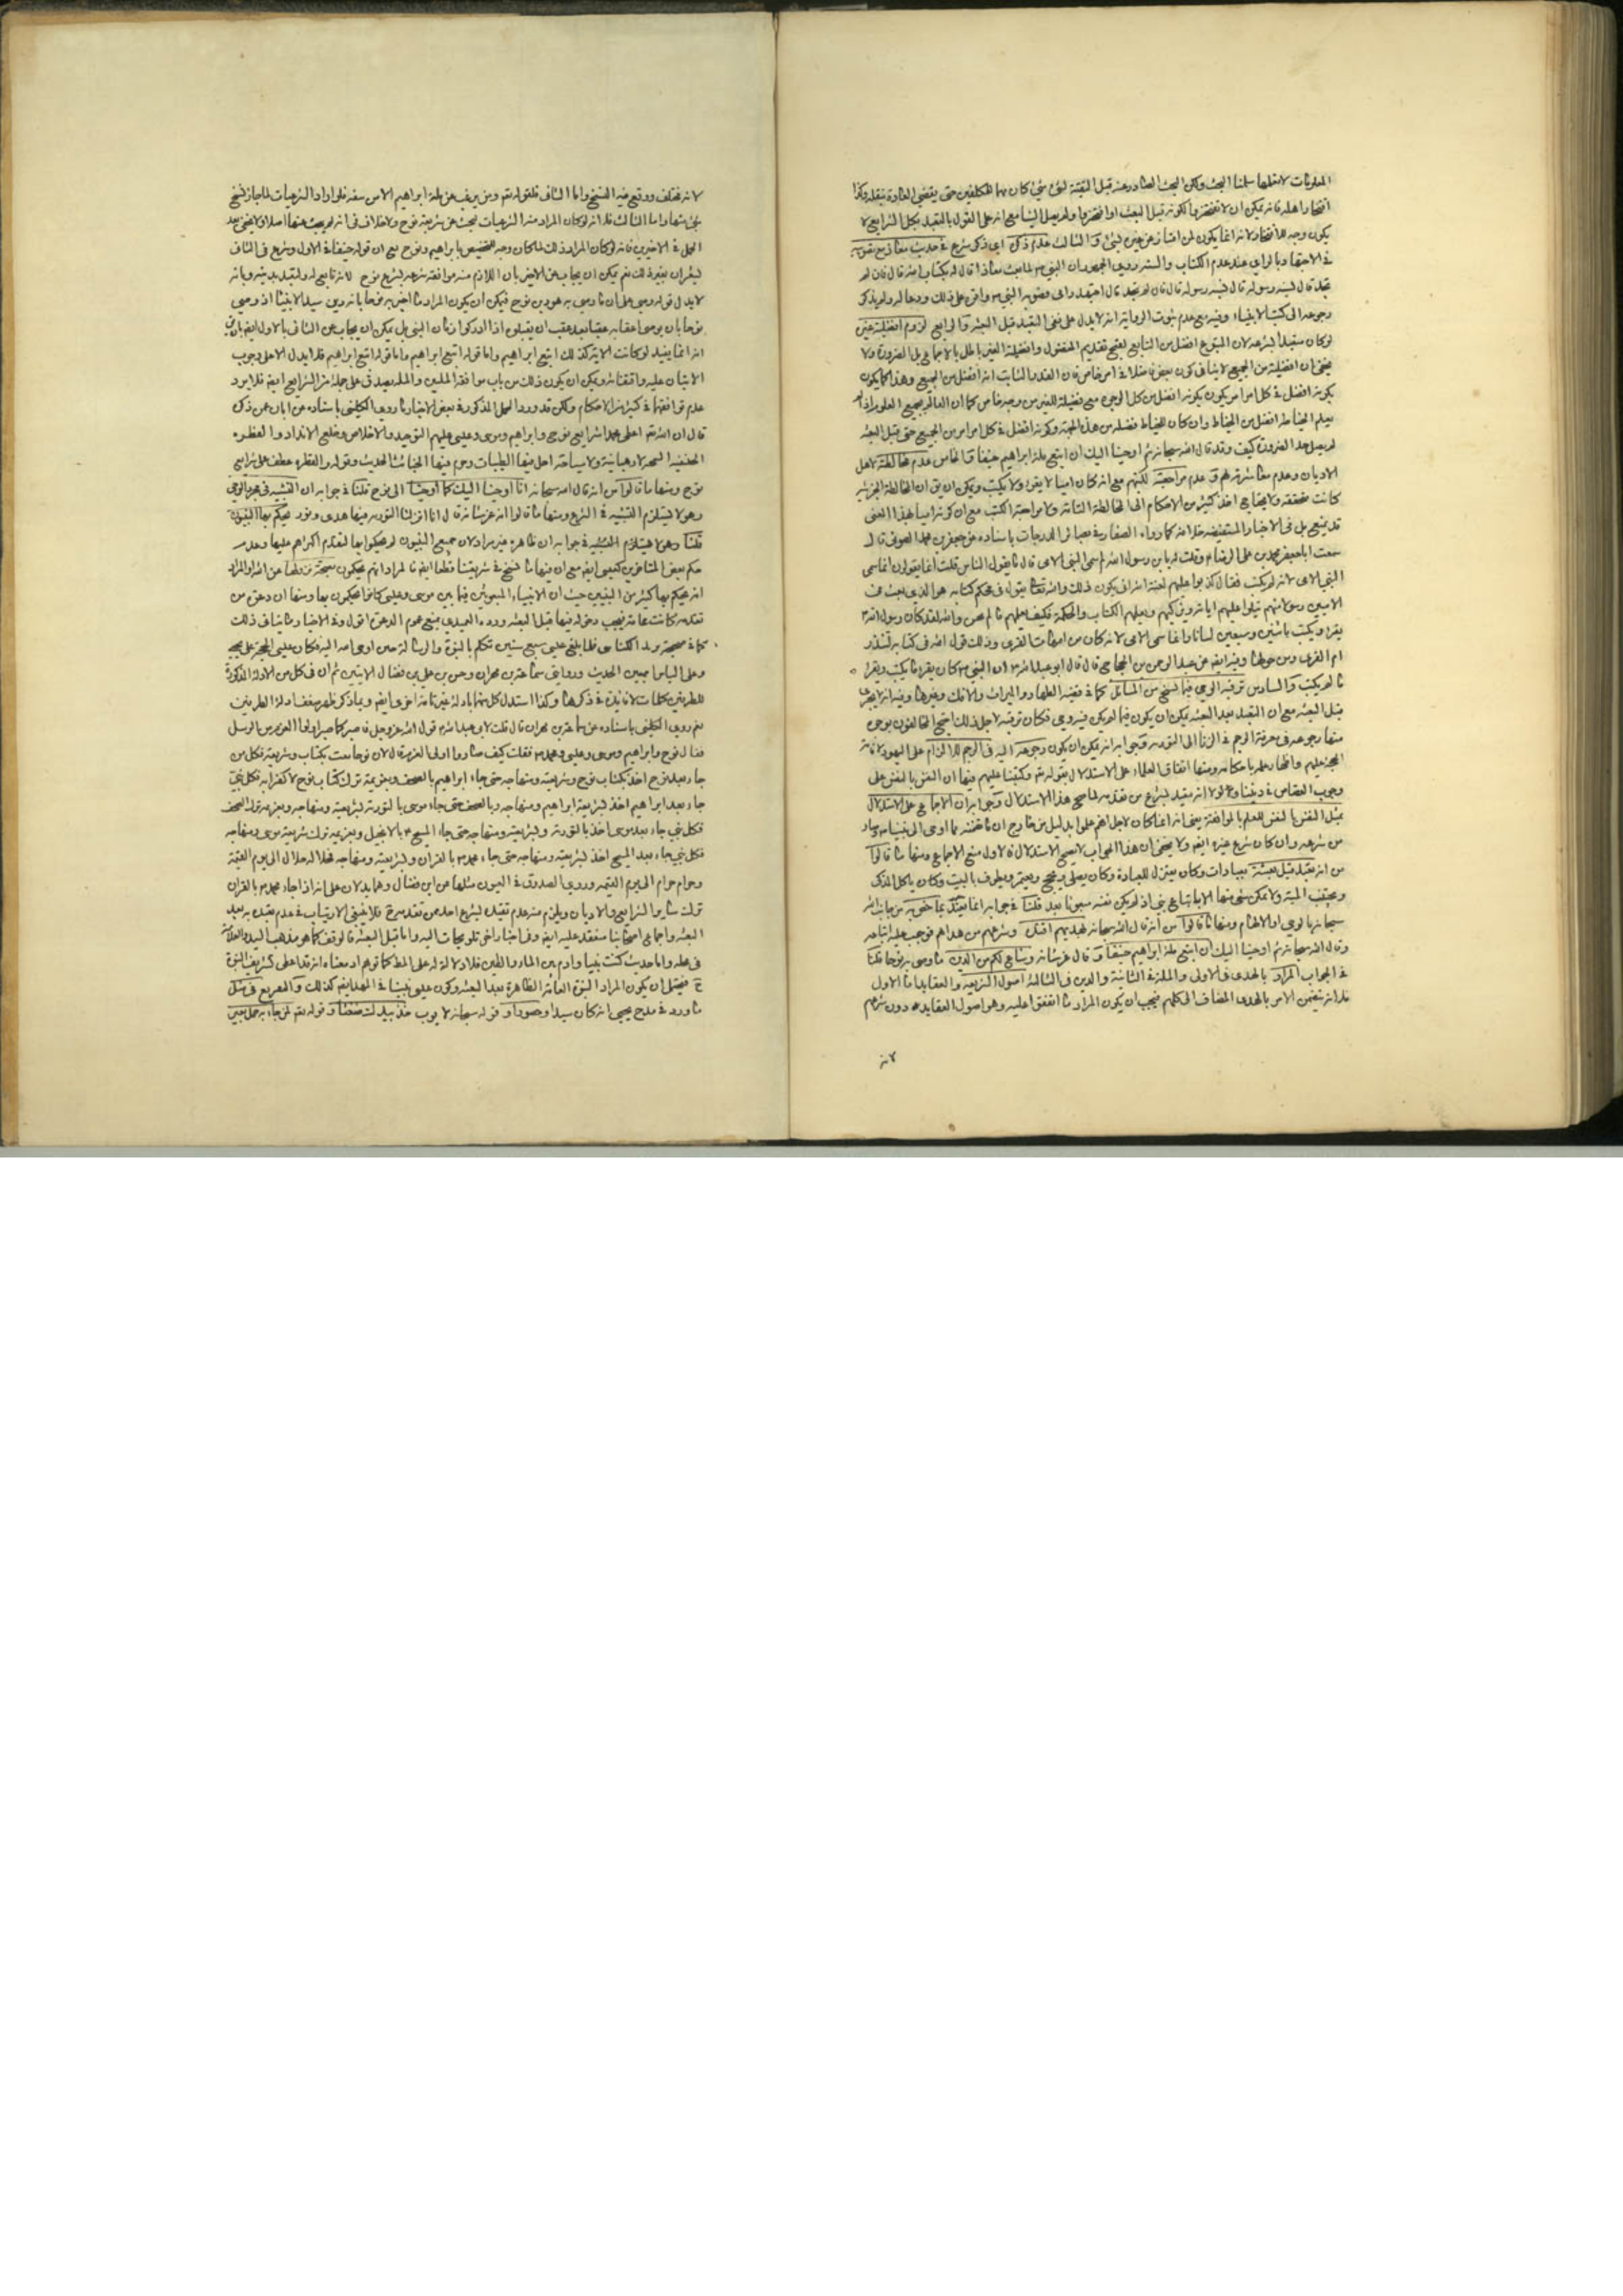 المعلومات لانعلمها سلمنا البحث ولكن البحث الصادر عنه قبل البعثة لشئ كان بها المكلفين حتى يقتضى العادة بنقله وكذا
افتخار اهله فانه يمكن ان لا يفتخروا لكونه قبل البعث او افتخروا ولم يصل الينا مع انه على القول بالتعبد بكل الشرايع لا
يكون وجه للافتخار لانه انما يكون لمن امتاز عن غيره بشئ والثالث عدم ذكره اى ذكر شرع فى حديث معاذ مع تصويبه
فى الاجتهاد بالراى عند عدم الكتاب والسنة روى الجمهور ان النبى ص لما بعث معاذا قال له بكتاب الله قال فان لم
تجد قال بسنة رسوله قال فان لم تجد قال اجتهد رايى فصوبه النبى ص واقره على ذلك ولم يذكر
رجوعه الى كتب الانبياء وفيه مع عدم ثبوت الرواية انه لا يدل على نفى التعبد قبل البعثة والرابع لزوم افضلية غيره
لو كان متعبدا بشرعه لان المتبوع افضل من التابع لقبح تقديم المفضول وافضلية الغير باطل بالاجماع بل الضرورة ولا
يخفى ان افضليته من الجميع لا ينافى كون بعض فاضلا فى امر خاص فان القدر الثابت انه افضل من الجميع وهذا كما يكون
يكونه افضل فى كل امر امر يكون بكونه افضل من كل الوجوه مع فضيلة للغير من وجه خاص كما ان العالم بجميع العلوم اذا لم
يعلم الخياطة افضل من الخياط وان كان للخياط فضل من هذه الجهة وكونه افضل فى كل امر امر من الجميع حتى قبل البعثة
لم يصل حد الضرورة كيف وقد قال الله سبحانه ثم اوحينا اليك ان اتبع ملة ابراهيم حنيفا والخامس عدم مخالطة لاهل
الاديان وعدم معاشرته لهم وعدم مراجعته لكتبهم مع انه كان اميا لا يقرا ولا يكتب ويمكن ان يق ان المخالطة الجزئية
كانت متحققة ولا يحتاج اخذ كثير من الاحكام الى المخالطة التامة ولا مراجعة الكتب مع ان كونه اميا بهذا المعنى
قد يمنع بل فى الاخبار المستفيضة خلافه كما رواه الصفار فى بصاير الدرجات باسناده عن جعفر بن محمد الصوفى قال
سمعت ابا جعفر محمد بن على الرضا ع وقلت له يابن رسول الله لم سمى النبى الامى قال ما يقول الناس قلت انما يقولون انما سمى
النبى الامى لانه لم يكتب فقال كذبوا عليهم لعنة الله انى يكون ذلك والله تعالى يقول فى محكم كتابه هو الذى بعث فى
الاميين رسولا منهم يتلوا عليهم اياته ويزكيهم ويعلمهم الكتاب والحكمة فكيف يعلمهم ما لم يحسن والله لقد كان رسول الله ص
يقرا ويكتب باثنين وسبعين لسانا وانما سمى الامى لانه كان من امهات القرى وذلك قول الله فى كتابه لتنذر
ام القرى ومن حولها وفيه ايضه عن عبد الرحمن بن الحجاج قال قال ابو عبد الله ع ان النبى ص كان يقرا ما يكتب ويقرا
ما لم يكتب والسادس ترقبه الوحى فيما لنسخ من المسائل كما فى قضية الظهار والميراث والافك وغيرها وفيه انه لا يجرى
قبل البعثة مع ان التعبد بعد البعثة يمكن ان يكون فيما لم يكن فيه وحى فكان ترقبه لاجل ذلك احتج المخالفون بوجوه
منها رجوعه فى معرفة الرجم فى الزنا الى التوريه وجوابه انه يمكن ان يكون رجوعه اليه فى الرجم للالزام على اليهود لاقامة
الحجة عليهم واظهار علمه باحكامه ومنها اتفاق العلماء على الاستدلال بقوله تع وكتبنا عليهم فيها ان النفس بالنفس على
وجوب القصاص فى ديننا ولولا انه متعبد بشرع من تقدمه لما صح هذا الاستدلال وجوابه ان الاجماع على الاستدلال
من شرعه وان كان شرع غيره ايضه ولا يخفى ان هذا الجواب لا يصح الاستدلال فالاولى منع الاجماع ومنها ما قالوا
من انه تعبد قبل بعثته بعبادات وكان يعتزل للعبادة وكان يصلى ويحج ويعتمر ويطوف بالبيت وكان ياكل المذكى
ويجتنب الميتة ولا يمكن شئ منها الا باتباع نبى اذ لم يكن نفسه مبعوثا بعد قلنا فى جوابه انما تعبد بما خص به من جانب الله
سبحانه بالوحى او الالهام ومنها ما قالوا من انه قال الله سبحانه فبهديهم اقتده وشرعهم من هداهم فوجب عليه اتباعه
وقال الله سبحانه ثم اوحينا اليك ان اتبع ملة ابراهيم حنيفا وقال عز شانه وشرع لكم من الدين ما وصى به نوحا قلنا
فى الجواب المراد بالهدى فى الاولى والملة فى الثانية والدين فى الثالثة اصول الشريعة والعقايد اما الاول
فلانه تضمن الامر بالهدى المضاف الى كلهم فيجب ان يكون المراد ما اتفقوا عليه وهو اصول العقايد دون شرعهم
لانه
لانه مختلف ووقع فيه النسخ واما الثانى فلقوله تع ومن يرغب عن ملة ابراهيم الا من سفه فلو اراد الشرعيات لما جاز نسخ
شئ منها واما الثالث فلانه لو كان المراد منه الشرعيات لبحث عن شريعة نوح ولا خلاف فى انه لم يبحث عنها اصلا ولا يخفى بعد
الحمل فى الاخيرين فانه لو كان المراد ذلك لما كان وجه لتخصيص بابراهيم ونوح مع ان قوله حنيفا فى الاول وشرع فى الثانى
يشعران بغير ذلك نعم يمكن ان يجاب عن الاخير بان اللازم منه موافقة شرعه لشرع نوح لا انه تابع له ولتعبد به وبانه
لا يدل قوله وصى على ان ما وصى به هو دين نوح فيمكن ان يكون المراد ما اخبر به نوحا بانه دين سيد الانبياء اذ وصى
نوحا بان يوصى اعقابه عقبا بعد عقب ان يقبلوه اذا ادركوا زمان النبى بل يمكن ان يجاب عن الثانى بالاول ايضه بان
انه انما يفيد لو كانت الاية كذلك اتبع ابراهيم واما قوله اتبع ملة ابراهيم فلا يدل الا على وجوب
الاتيان عليه واتفقنا له ويمكن ان يكون ذلك من باب موافقة الملتين والملة يصدق على جملة من الشرايع ايضه فلا يرد
عدم توافقهما فى كثير من الاحكام ولكن قد ورد الحمل المذكور فى بعض الاخبار ما روى الكلينى باسناده عن ابان عمن ذكره
قال ان الله تع اعطى محمدا شرايع نوح وابراهيم وموسى وعيسى عليهم التوحيد والاخلاص وخلع الانداد والفطرة
الحنيفية السمحة لا رهبانية ولا سياحة احل فيها الطيبات وحرم فيها الخبائث الحديث وقوله والفطرة عطف على شرايع
نوح ومنها ما قالوا من انه قال الله سبحانه انا اوحينا اليك كما اوحينا الى نوح قلنا فى جوابه ان التشبيه فى مجرد الوحى
وهو لا يستلزم التشبيه فى الشرع ومنها ما قالوا انه عز شانه قال انا انزلنا التوريه فيها هدى ونور يحكم بها النبيون
قلنا فى جوابه ان ظاهره غير مراد لان جميع النبيون لم يحكموا بها لتقدم اكثرهم عليها وعدم
حكم بعض المتاخرين كعيسى ايضه مع ان فيها ما نسخ فى شريعتنا قطعا ايضه فالمراد انهم يحكمون بصحة نزولها عن الله او المراد
انه يحكم بها كثير من النبيين حيث ان الانبياء المبعوثين فيما بين موسى وعيسى كانوا يحكمون بها ومنها ان دعوة من
تقدمه كانت عامة فيجب دخوله فيها قبل البعثة ورده العميدى بمنع عموم الدعوة اقول وفى الاخبار ما ينافى ذلك
كما فى صحيحة يزيد الكناسى فلما بلغ عيسى سبع سنين تكلم بالنبوة والرسالة حين اوحى الله اليه فكان عيسى الحجة على يحيى
وعلى الناس اجمعين الحديث وروايتى سماعة بن مهران وحسن بن على بن فضال الاتيتين ثم ان فى كل من الادلة المذكورة
للطرفين كلمات لا فايدة فى ذكرها وكذا استدل كل منهما بادلة غير تامة اخرى ايضه وبما ذكر ظهر ضعف ادلة الطرفين
نعم روى الكلينى باسناده عن سماعة بن مهران قال قلت لابى عبد الله ع قول الله عز وجل فاصبر كما صبر اولوا العزم من الرسل
فقال نوح وابراهيم وموسى وعيسى ومحمد ص فقلت كيف صاروا اولى العزم قال لان نوحا بعث بكتاب وشريعة فكل من
جاء بعد نوح اخذ بكتاب نوح وشريعته ومنهاجه حتى جاء ابراهيم بالصحف وبعزيمة ترك كتاب نوح لا كفرا به فكل نبى
جاء بعد ابراهيم اخذ بشريعة ابراهيم ومنهاجه وبالصحف حتى جاء موسى بالتورية وشريعته ومنهاجه وبعزيمة ترك الصحف
فكل نبى جاء بعد موسى اخذ بالتورية وشريعته ومنهاجه حتى جاء المسيح ع بالانجيل وبعزيمة ترك شريعة موسى ومنهاجه
فكل نبى جاء بعد المسيح اخذ بشريعته ومنهاجه حتى جاء محمد ص بالقران وبشريعته ومنهاجه فحلاله حلال الى يوم القيمة
وحرامه حرام الى يوم القيمه وروى الصدوق فى العيون مثلها من ابن فضال وهما يدلان على انه اذا جاء محمد ص بالقران
ترك ساير الشرايع والاديان ويلزم منه عدم تعبده بشرع احد من تقدمه فلا ينبغى الارتياب فى عدم تعبده به بعد
البعثة واجماع اصحابنا منعقد عليه ايضه وفى اخبار اخر تلويحات اليه واما قبل البعثة فالوقف كما هو مذهب السيد والعلامة
فى محله واما حديث كنت نبيا وادم بين الماء والطين فلا دلالة له على المط كما توهم اذ معناه
فيحتمل ان يكون المراد النبوة العامة الظاهرة بعد البعثة وكون عيسى نبيا فى المهد ايضه كذلك
ما ورد فى مدح يحيى انه كان سيدا وحصورا وقوله سبحانه لايوب خذ بيدك ضغثا وقوله تع لمن جاء به حمل بعير